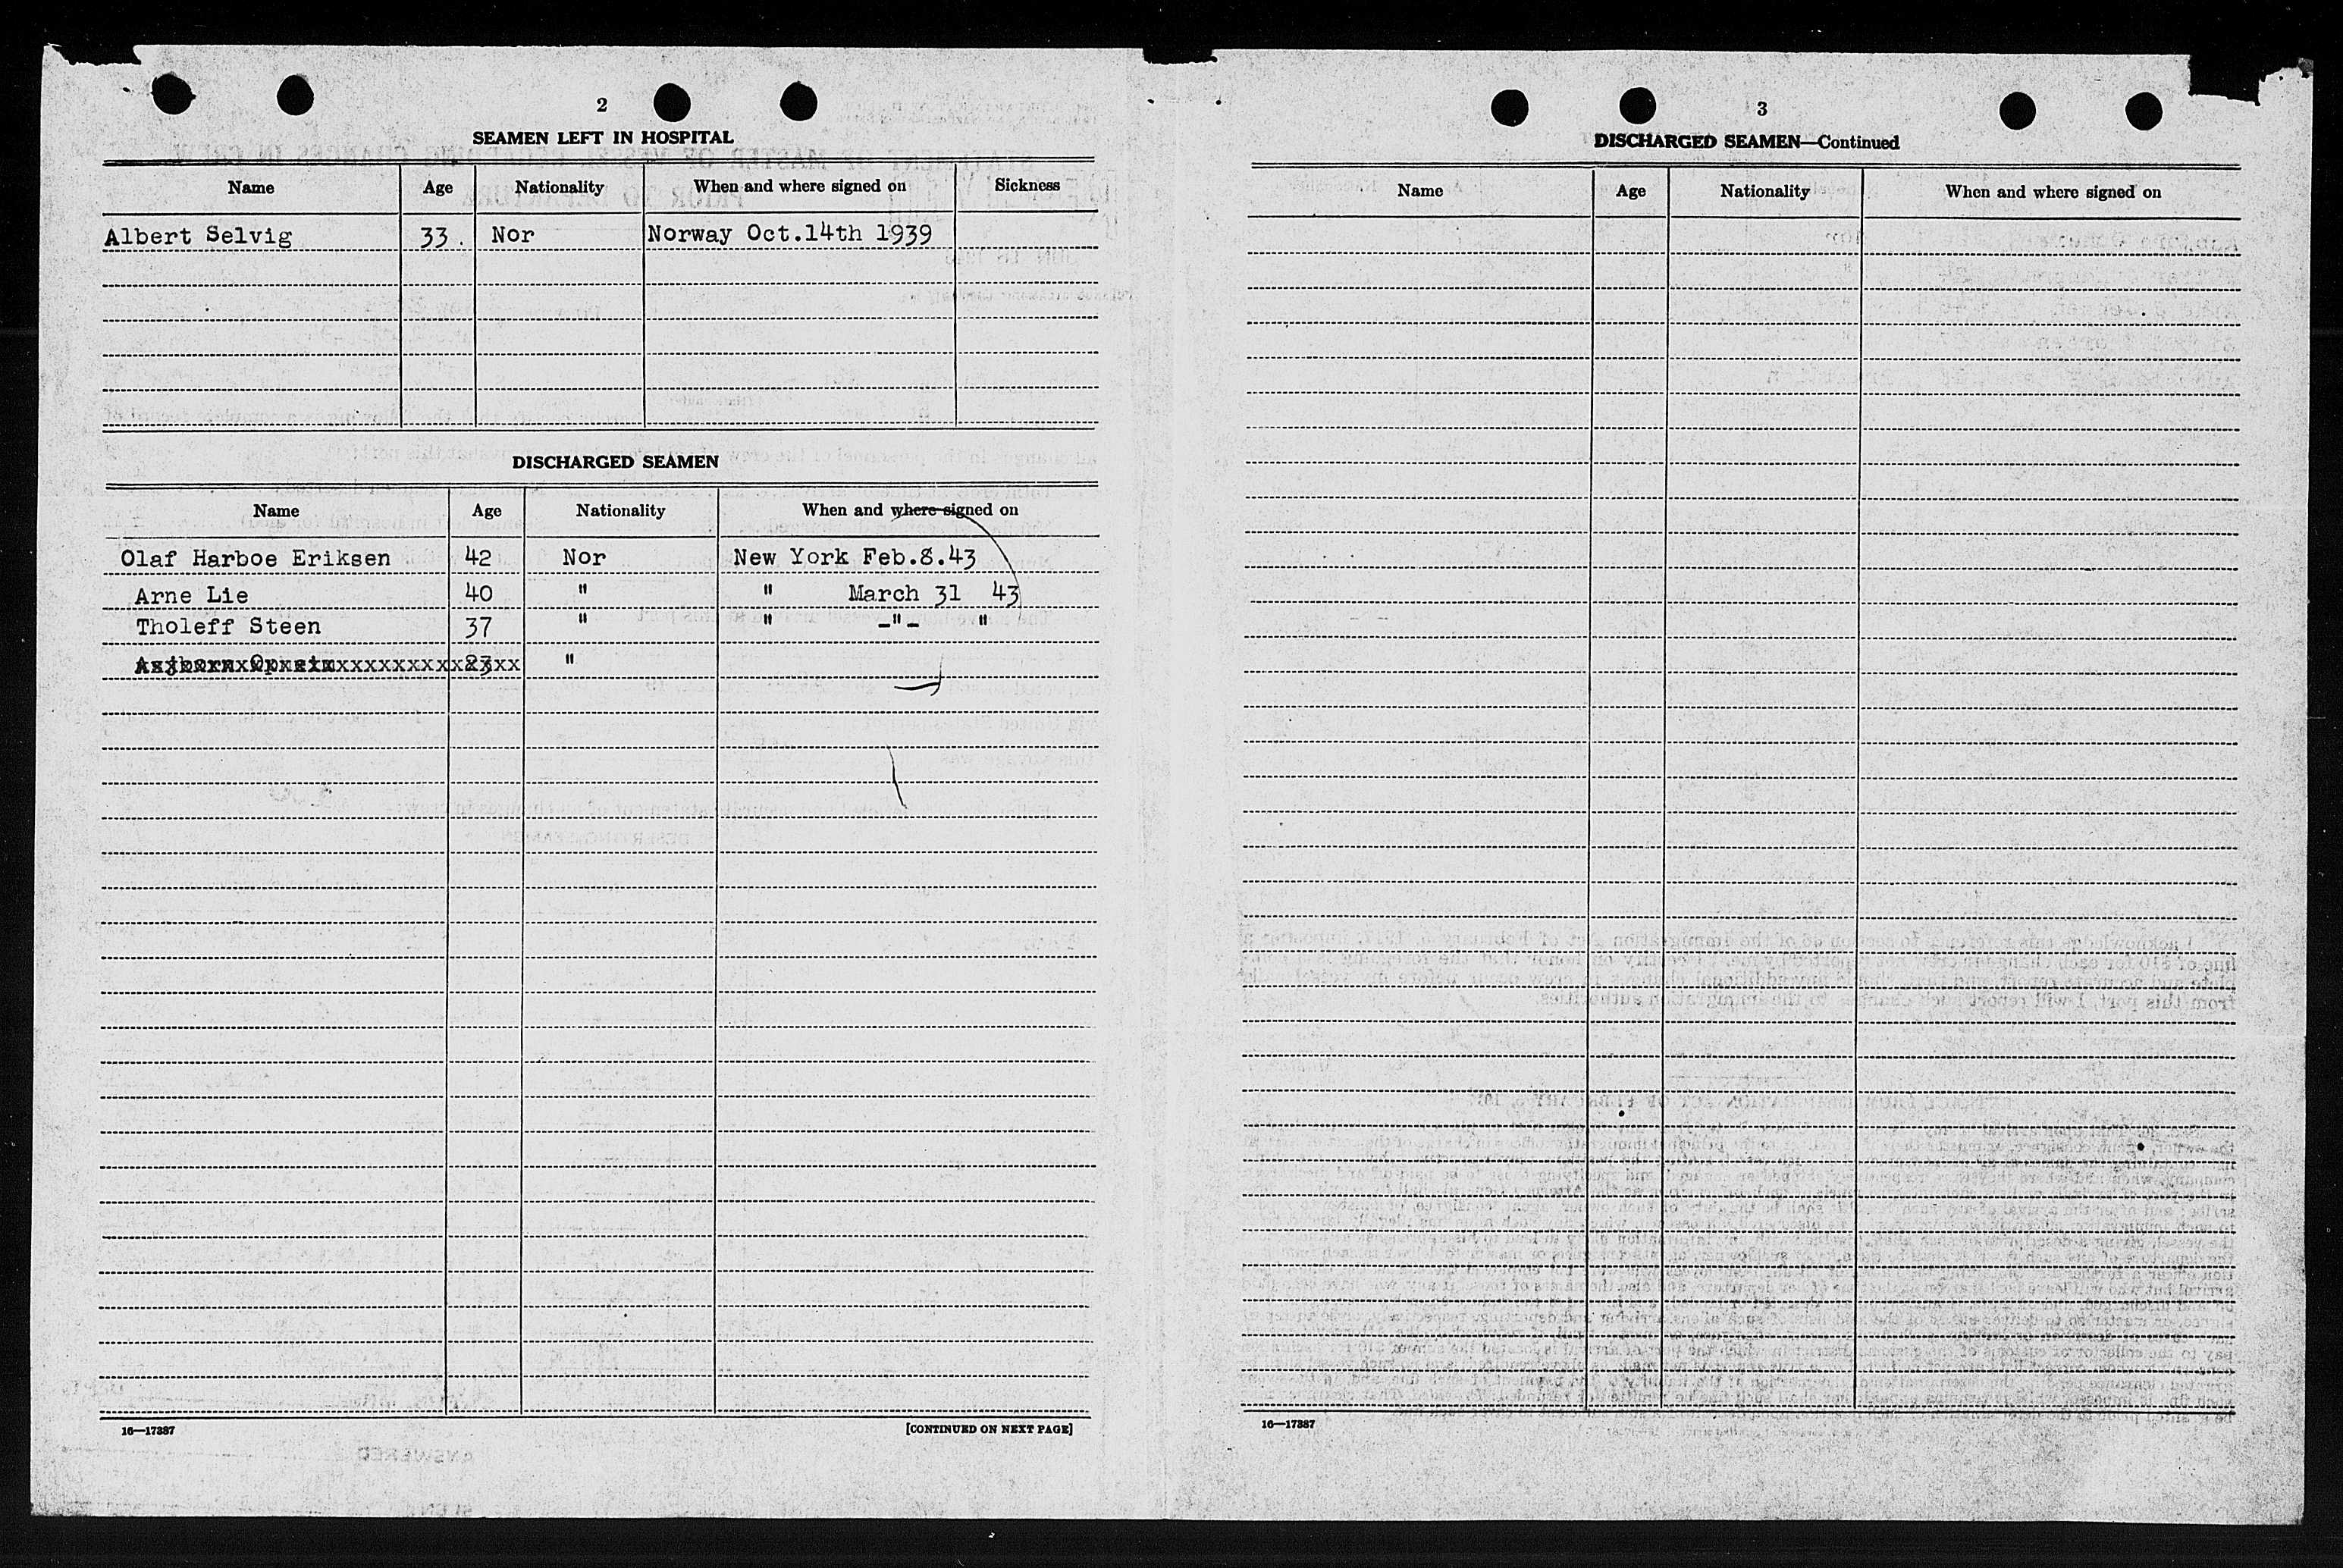 2
SEAMEN LEFT IN HOSPITAL
Name Age Nationality When and where signed on Sickness
Albert Selvig 33. Nor Norway Oct.14th 1939
DISCHARGED SEAMEN
Name Age Nationality When and where signed on
Olaf Harboe Eriksen 42 Nor New York Feb.8.43
Arne Lie 40 " " March 31 43
Tholeff Steen 37 " " -"- "
23 "
16—17387 [CONTINUED ON NEXT PAGE]
3
DISCHARGED SEAMEN—Continued
Name Age Nationality When and where signed on
16—17387